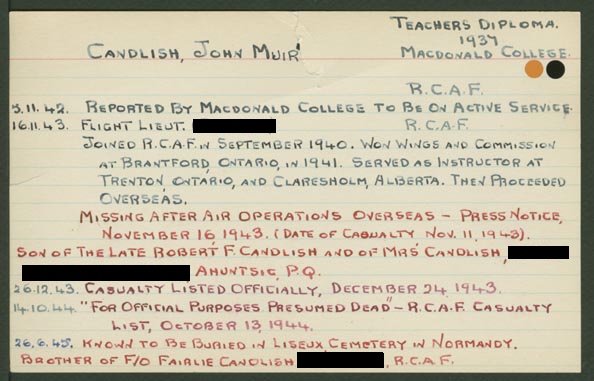 TEACHERS DIPLOMA.
1937
CANDLISH, JOHN MUIR
MACDONALD COLLEGE.
R.C.A.F.
5.11.42. REPORTED BY MACDONALD COLLEGE TO BE ON ACTIVE SERVICE.
16.11.43. FLIGHT LIEUT. R.C.A.F.
JOINED R.C.A.F. IN SEPTEMBER 1940. WON WINGS AND COMMISSION
AT BRANTFORD, ONTARIO, IN 1941. SERVED AS INSTRUCTOR AT
TRENTON, ONTARIO, AND CLARESHOLM, ALBERTA. THEN PROCEEDED
OVERSEAS.
MISSING AFTER AIR OPERATIONS OVERSEAS – PRESS NOTICE,
NOVEMBER 16 1943. (DATE OF CASUALTY NOV. 11, 1943).
SON OF THE LATE ROBERT F. CANDLISH AND OF MRS CANDLISH,
AHUNTSIC, P.Q.
26.12.43. CASUALTY LISTED OFFICIALLY, DECEMBER 24 1943.
14.10.44. "FOR OFFICIAL PURPOSES PRESUMED DEAD" – R.C.A.F. CASUALTY
LIST, OCTOBER 13, 1944.
26.6.45. KNOWN TO BE BURIED IN LISEUX CEMETERY IN NORMANDY.
BROTHER OF F/O FAIRLIE CANDLISH , R.C.A.F.